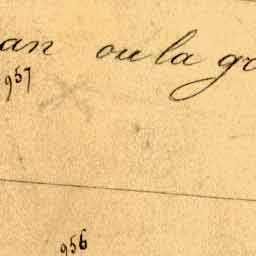 an ou la gr
957
956